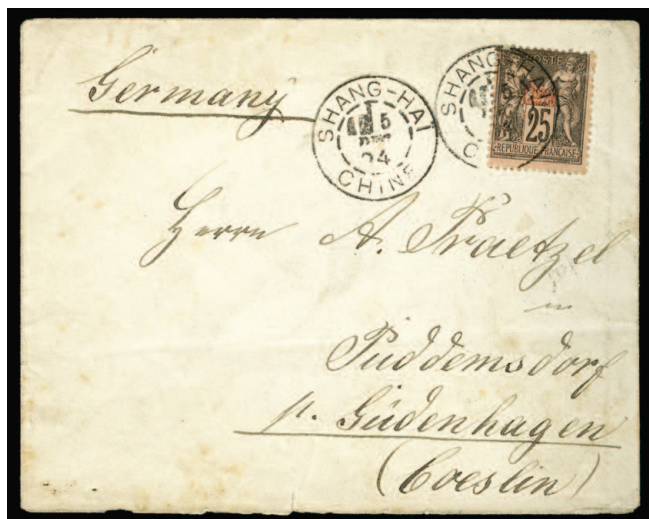 Germany
SHANG-HAI
5
DEC
94
CHINE
SHANG-HAI
POSTE
25
REPUBLIQUE FRANÇAISE
Herrn A. Praetzel
in
Puddemsdorf
p. Güdenhagen
(Coeslin)